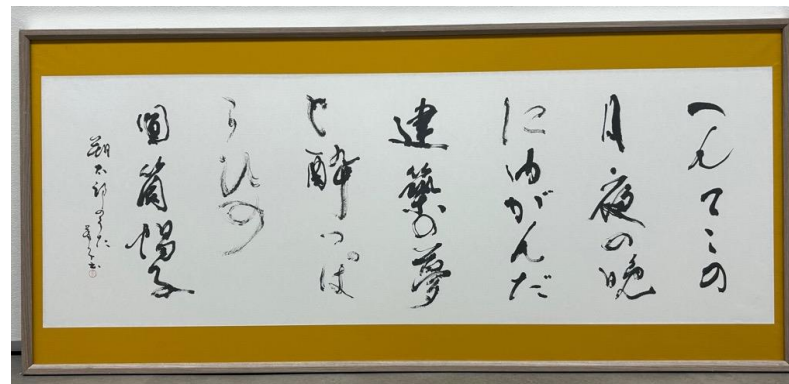 へんてこの
月夜の晩
にゆがんだ
建築の夢
と酔つぱ
らひの
圓筒帽子
朔太郎のうた
書